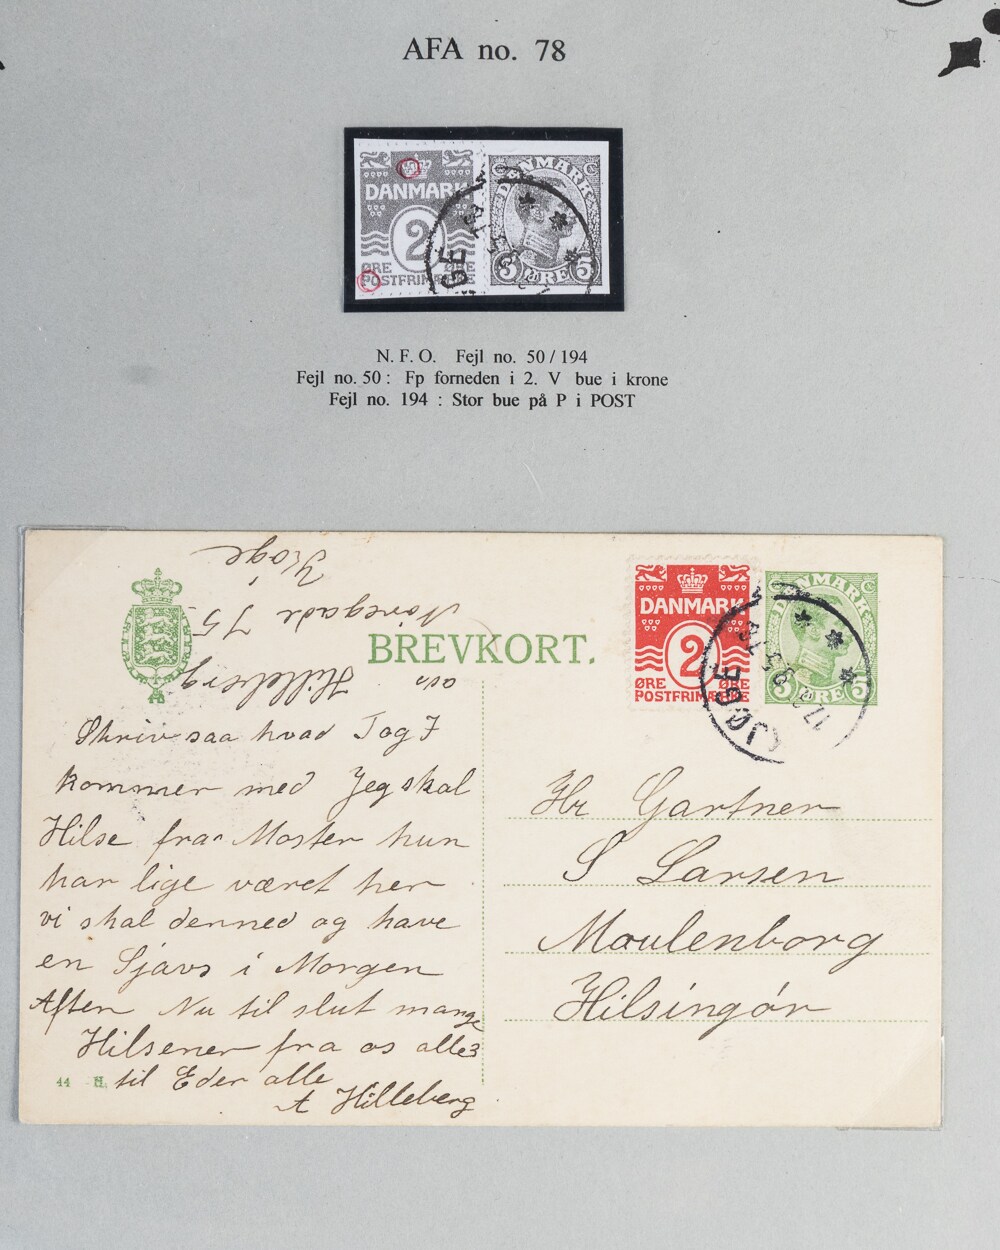 AFA no. 78
DANMARK
2
ØRE ØRE
POSTFRIM RKE
DANMARK
5 ØRE 5
GE
N. F. O. Fejl no. 50 / 194
Fejl no. 50 : Fp forneden i 2. V bue i krone
Fejl no. 194 : Stor bue på P i POST
Køge
Nørregade 75
Hilleberg
BREVKORT.
DANMARK
2
ØRE ØRE
POSTFRIMÆRKE
DANMARK
5 ØRE 5
KJØGE
Skriv saa hvad Tog I
kommer med Jeg skal
Hilse fra Moster hun
har lige været her
vi skal derned og have
en Sjavs i Morgen
Aften Nu til slut mange
Hilsener fra os alle 3
til Eder alle
A Hilleberg
44 H.
Hr Gartner
S Larsen
Moulenborg
Hilsingør